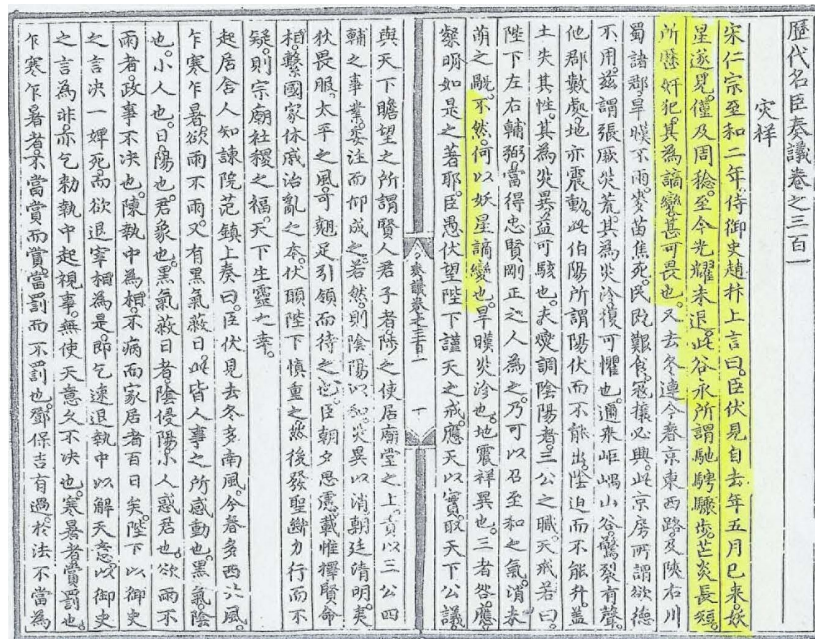 歷代名臣奏議卷之三百一
災祥
宋仁宗至和二年侍御史趙抃上言曰臣伏見自去年五月已來妖
星遂見僅及周稔至今光耀未退此谷永所謂馳騁驟步芒炎長短
所歷奸犯其為謫變甚可畏也又去冬連今春京東西路及陝右川
蜀諸郡旱暵不雨麥苗焦死民既艱食寇攘必興此京房所謂欲德
不用茲謂張厥災荒其為災沴復可懼也邇來岠嵎山谷驚裂有聲
他郡數處地亦震動此伯陽所謂陽伏而不能出陰迫而不能升蓋
土失其性其為災異益可駭也夫燮調陰陽者三公之職天戒若曰
陛下左右輔弼當得忠賢剛正之人為之乃可以召至和之氣消未
萌之戱不然何以妖星謫變也旱暵災沴也地震祥異也三者咎應
檕明如是之著耶臣愚伏望陛下謹天之戒應天以實取天下公議
奏議卷之三百一
與天下瞻望之所謂賢人君子者陟之使居廟堂之上責以三公四
輔之事業委注而仰成之若然則陰陽以和災異以消朝廷清明夷
狄畏服太平之風可翹足引領而待之也臣朝夕思慮載惟擇賢命
相繫國家休戚治亂之本伏願陛下慎重之然後發聖斷力行而不
疑則宗廟社稷之福天下生靈之幸
起居舍人知諫院范鎮上奏曰臣伏見去冬多南風今春多西北風
乍寒乍暑欲雨不雨又有黑氣蔽日此皆人事之所感動也黑氣陰
也小人也日陽也君象也黑氣蔽日者陰侵陽小人惑君也欲雨不
雨者政事不決也陳執中為相不病而家居者百日矣陛下以御史
之言決一婢死而欲退宰相為是即乞速退執中以解天意以御史
之言為非亦乞勑執中起視事無使天意久不決也寒暑者賞罰也
乍寒乍暑者不當賞而賞當罰而不罰也鄧保吉有過於法不當為